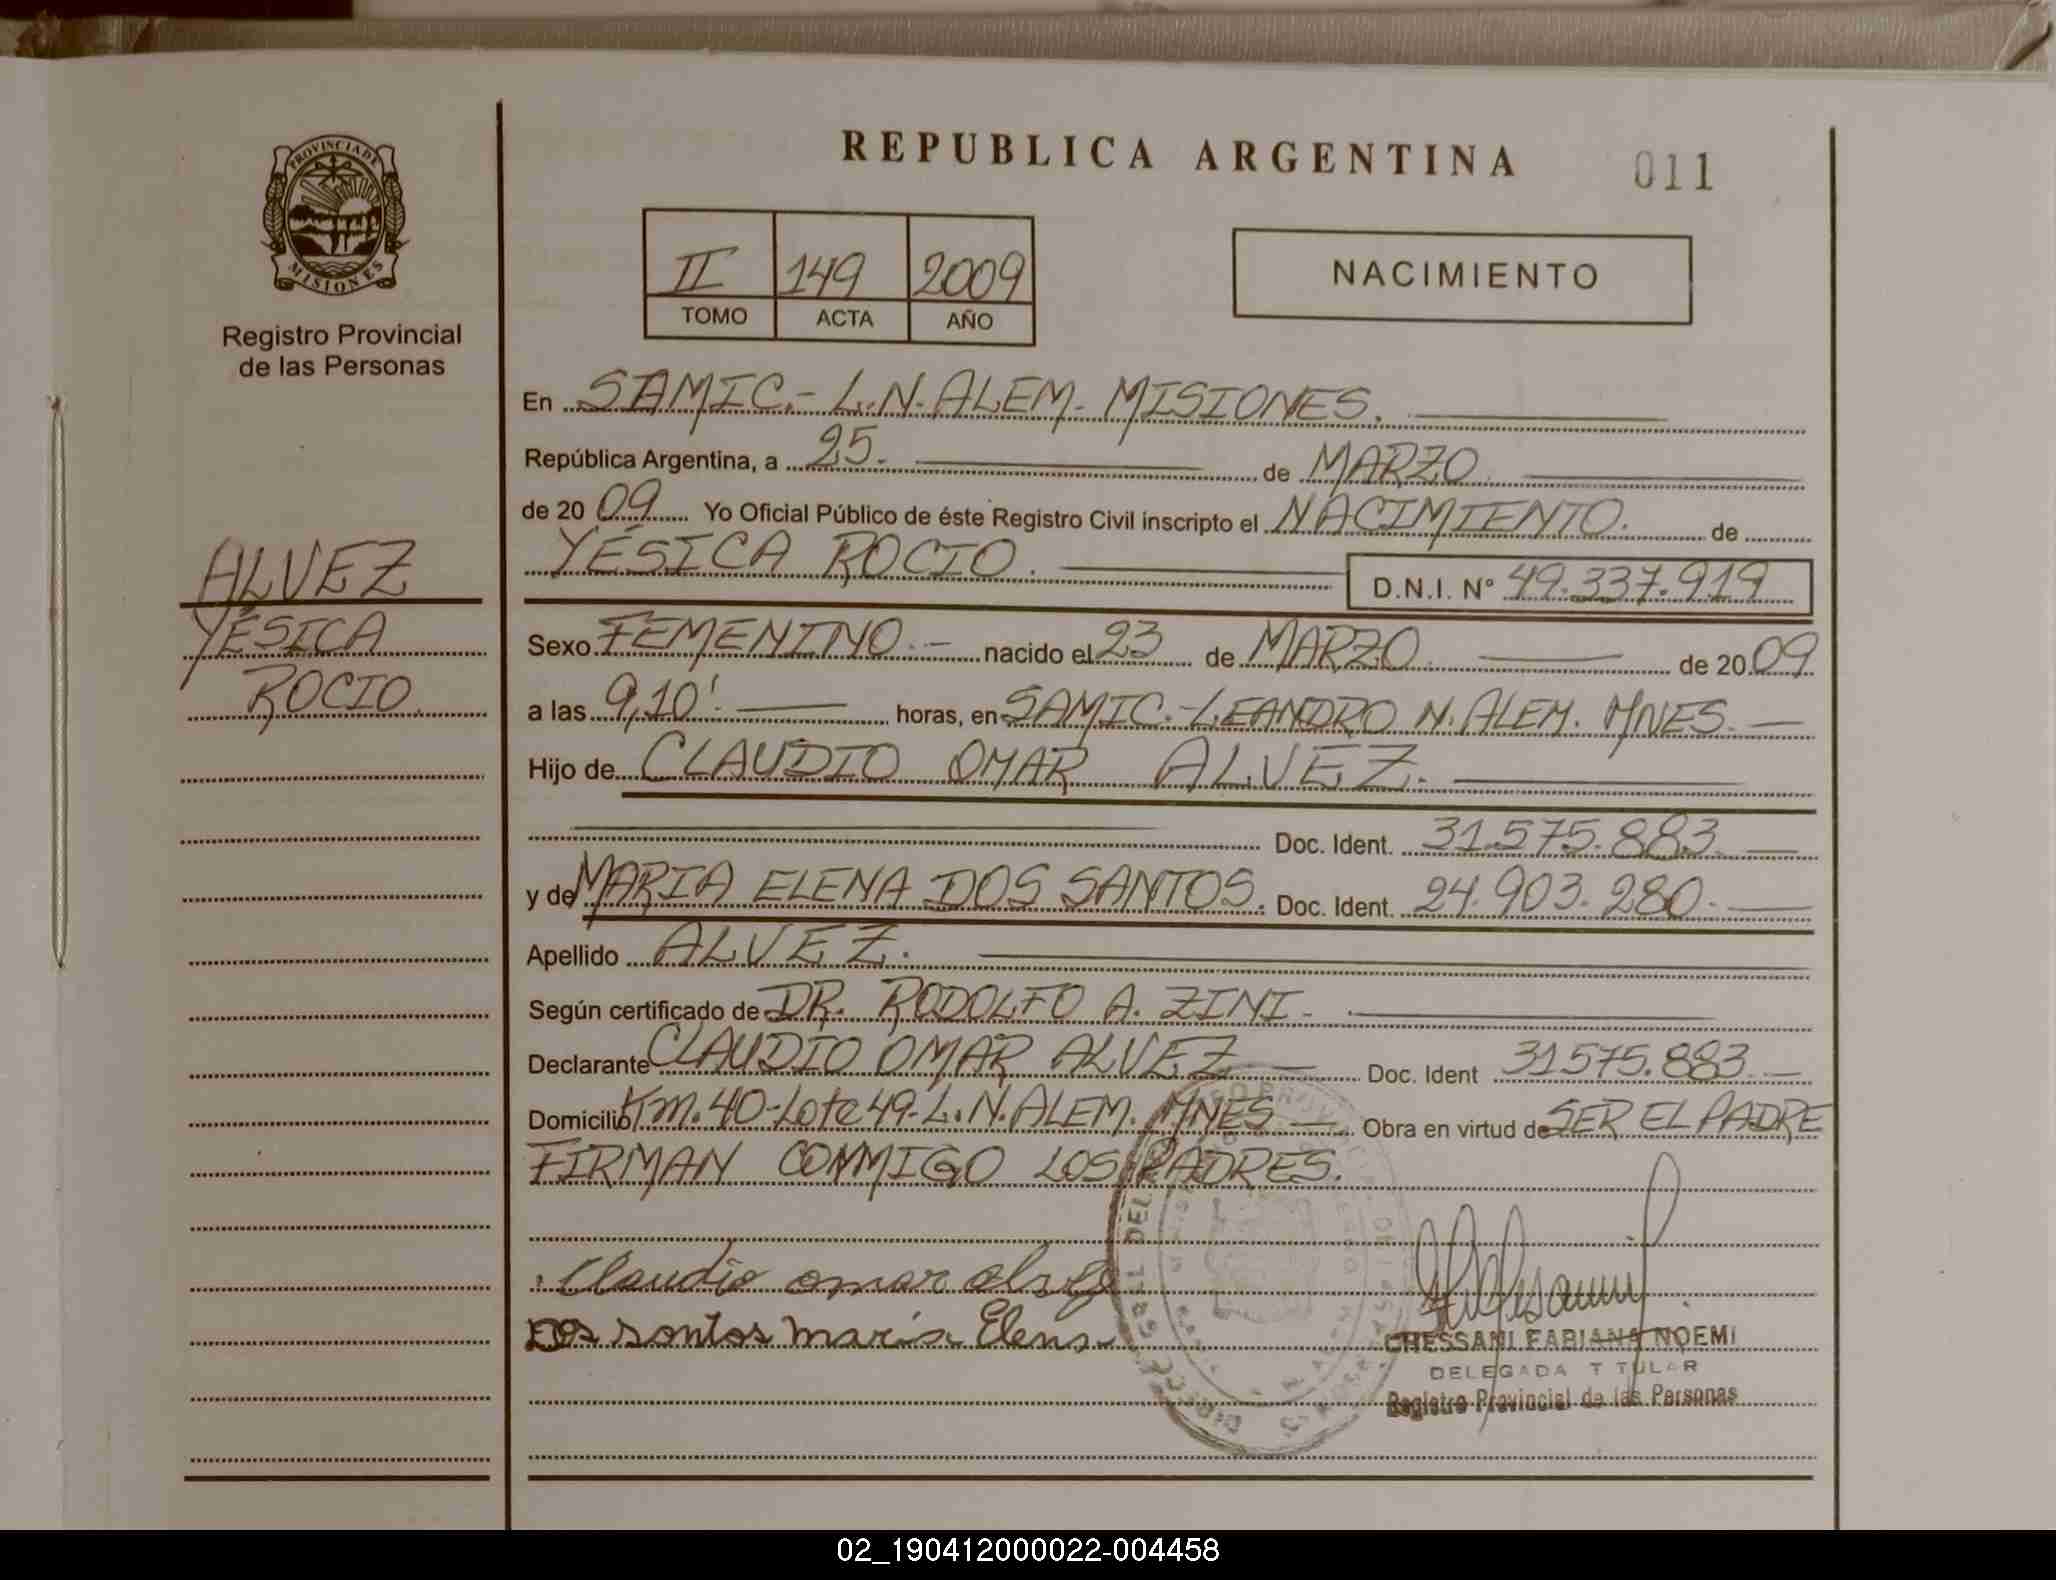 PROVINCIA DE
MISIONES
Registro Provincial
de las Personas
ALVEZ
YÉSICA
ROCIO
REPUBLICA ARGENTINA
011
II 149 2009
TOMO ACTA AÑO
NACIMIENTO
En SAMIC.- L.N. ALEM- MISIONES.
República Argentina, a 25. de MARZO
de 2009 Yo Oficial Público de éste Registro Civil inscripto el NACIMIENTO. de
YÉSICA ROCIO. D.N.I. N° 49.337.919
Sexo FEMENINO.- nacido el 23 de MARZO de 2009
a las 9,10'. horas, en SAMIC.-LEANDRO N. ALEM. MNES.
Hijo de CLAUDIO OMAR ALVEZ.
Doc. Ident. 31.575.883
y de MARIA ELENA DOS SANTOS. Doc. Ident. 24.903.280.
Apellido ALVEZ.
Según certificado de DR. RODOLFO A. ZINI-
Declarante CLAUDIO OMAR ALVEZ Doc. Ident 31575.883
Domicilio Km.40-Lote 49-L.N.ALEM. MNES Obra en virtud de SER EL PADRE
FIRMAN CONMIGO LOS PADRES.
Claudio omar alvez
Dos santos maria Elena
CHESSANI FABIANA NOEMI
DELEGADA TITULAR
Registro Provincial de las Personas
02_190412000022-004458